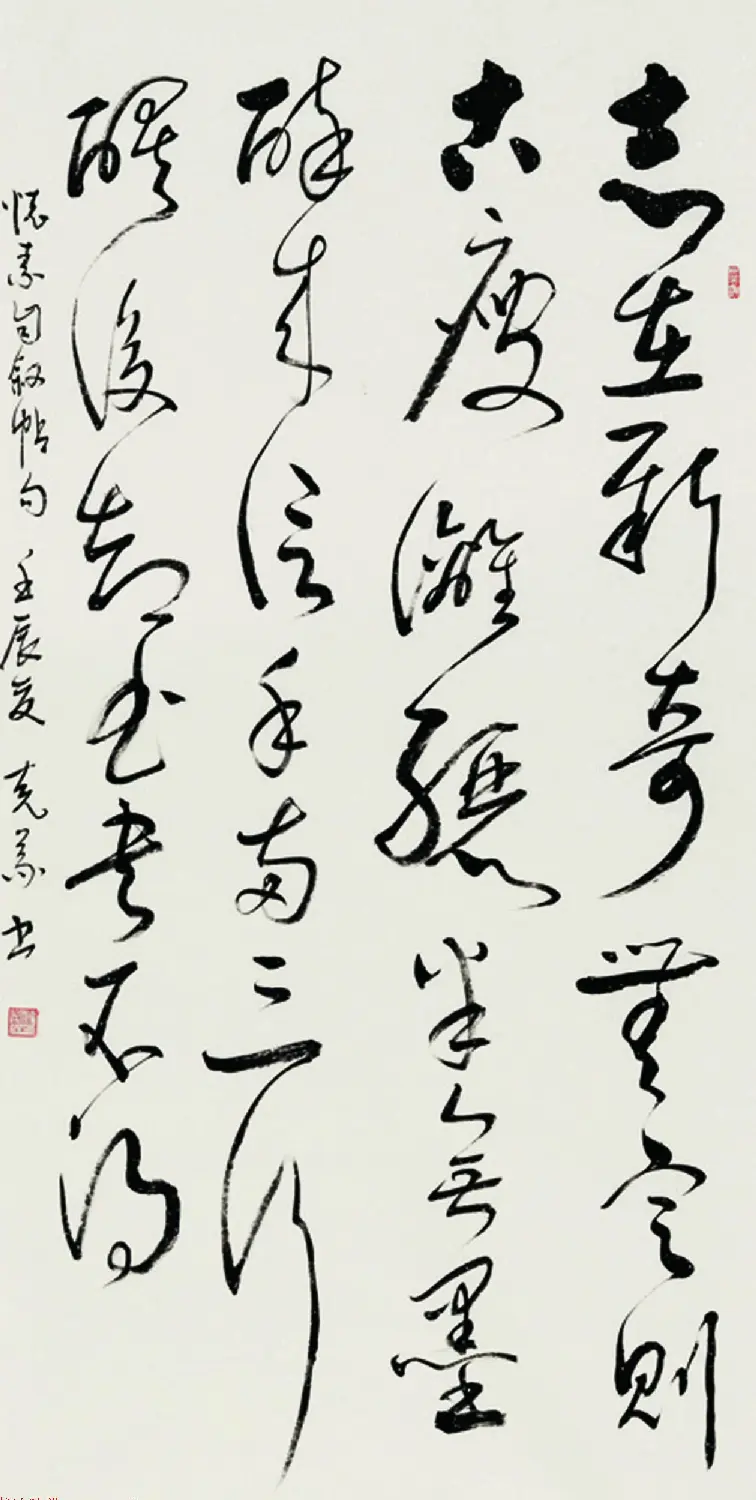 志在新奇無定則
古瘦灕驪半無墨
醉来信手兩三行
醒後却書書不得
懷素自叙帖句 壬辰夏 克 书